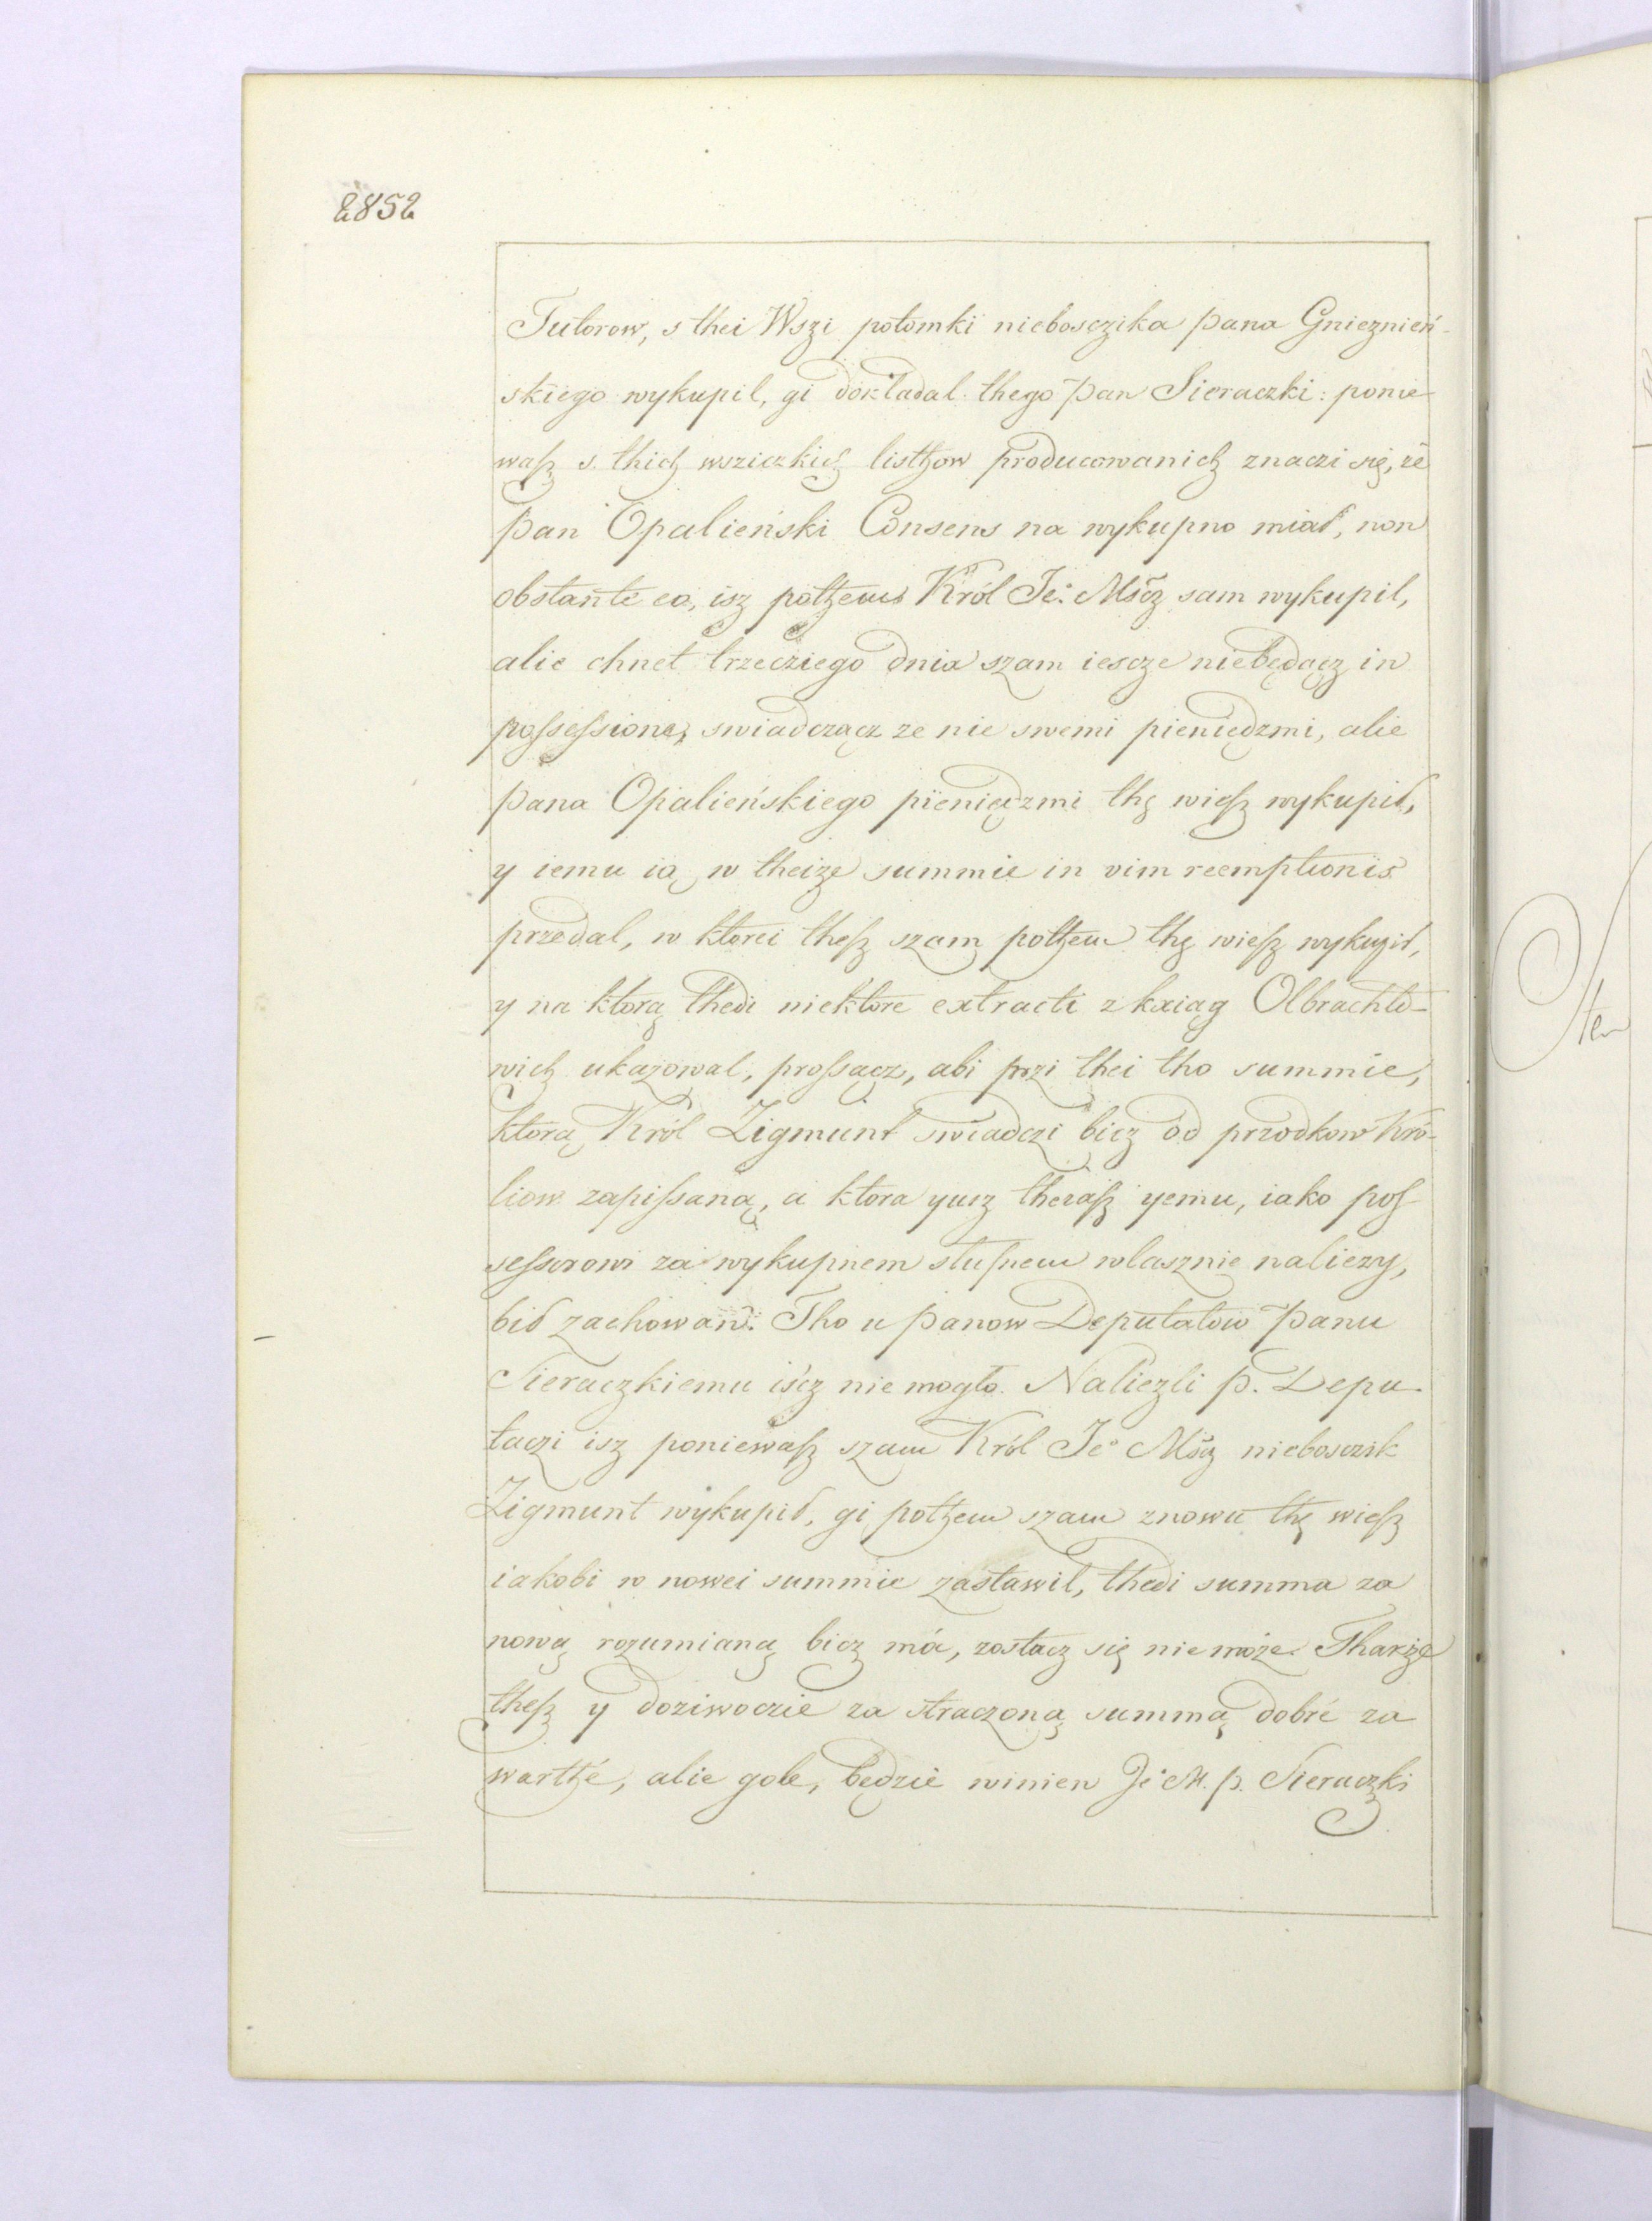 2852
Tutorow, s thei Wszi potomki nieboszczika pana Gnieznień-
skiego wykupil, gi dokładal thego pan Sieraczki: ponie
wasz s. thich wsziczkich listhow producowanich znaczi się, że
pan Opalieński Consens na wykupno miał, non
obstante eo, isz pothem Król Je: Mścz sam wykupil,
alie chnet trzecziego dnia szam iescze niebędącz in
possessione, swiadcząćz ze nie swemi pieniędzmi, alie
pana Opalieńskiego pieniędzmi thę wiesz wykupił,
y iemu ią w theize summie in vim reemptionis
przedal, w ktorei thesz szam pothem thę wiesz wykupił,
y na ktorą thedi niektore extracti z kxiąg Olbrachto-
wich ukazowal, prossącz, abi przi thei tho summie,
ktorą Król Zigmunt swiadczi bicz od przodkow Kró-
liow zapissaną, a ktora yusz therasz yemu, iako pos-
sessorowi za wykupnem słusnem wlasznie naliezy,
bił zachowan. Tho u panow Deputatow panu
Sieraczkiemu iścz nie mogło. Nalieżli p. Depu-
taczi isz poniewasz szam Król Je° Mścz nieboszczik
Zigmunt wykupił, gi pothem szam znowu thę wiesz
iakobi w nowei summie zastawil, thedi summa za
nową rozumianą bicz má, zostacz się nie może. Thakże
thesz y doziwoczie za straczoną summą dobré za
warthé, alie gole, będzie winien Je° M. p. Sieraczki